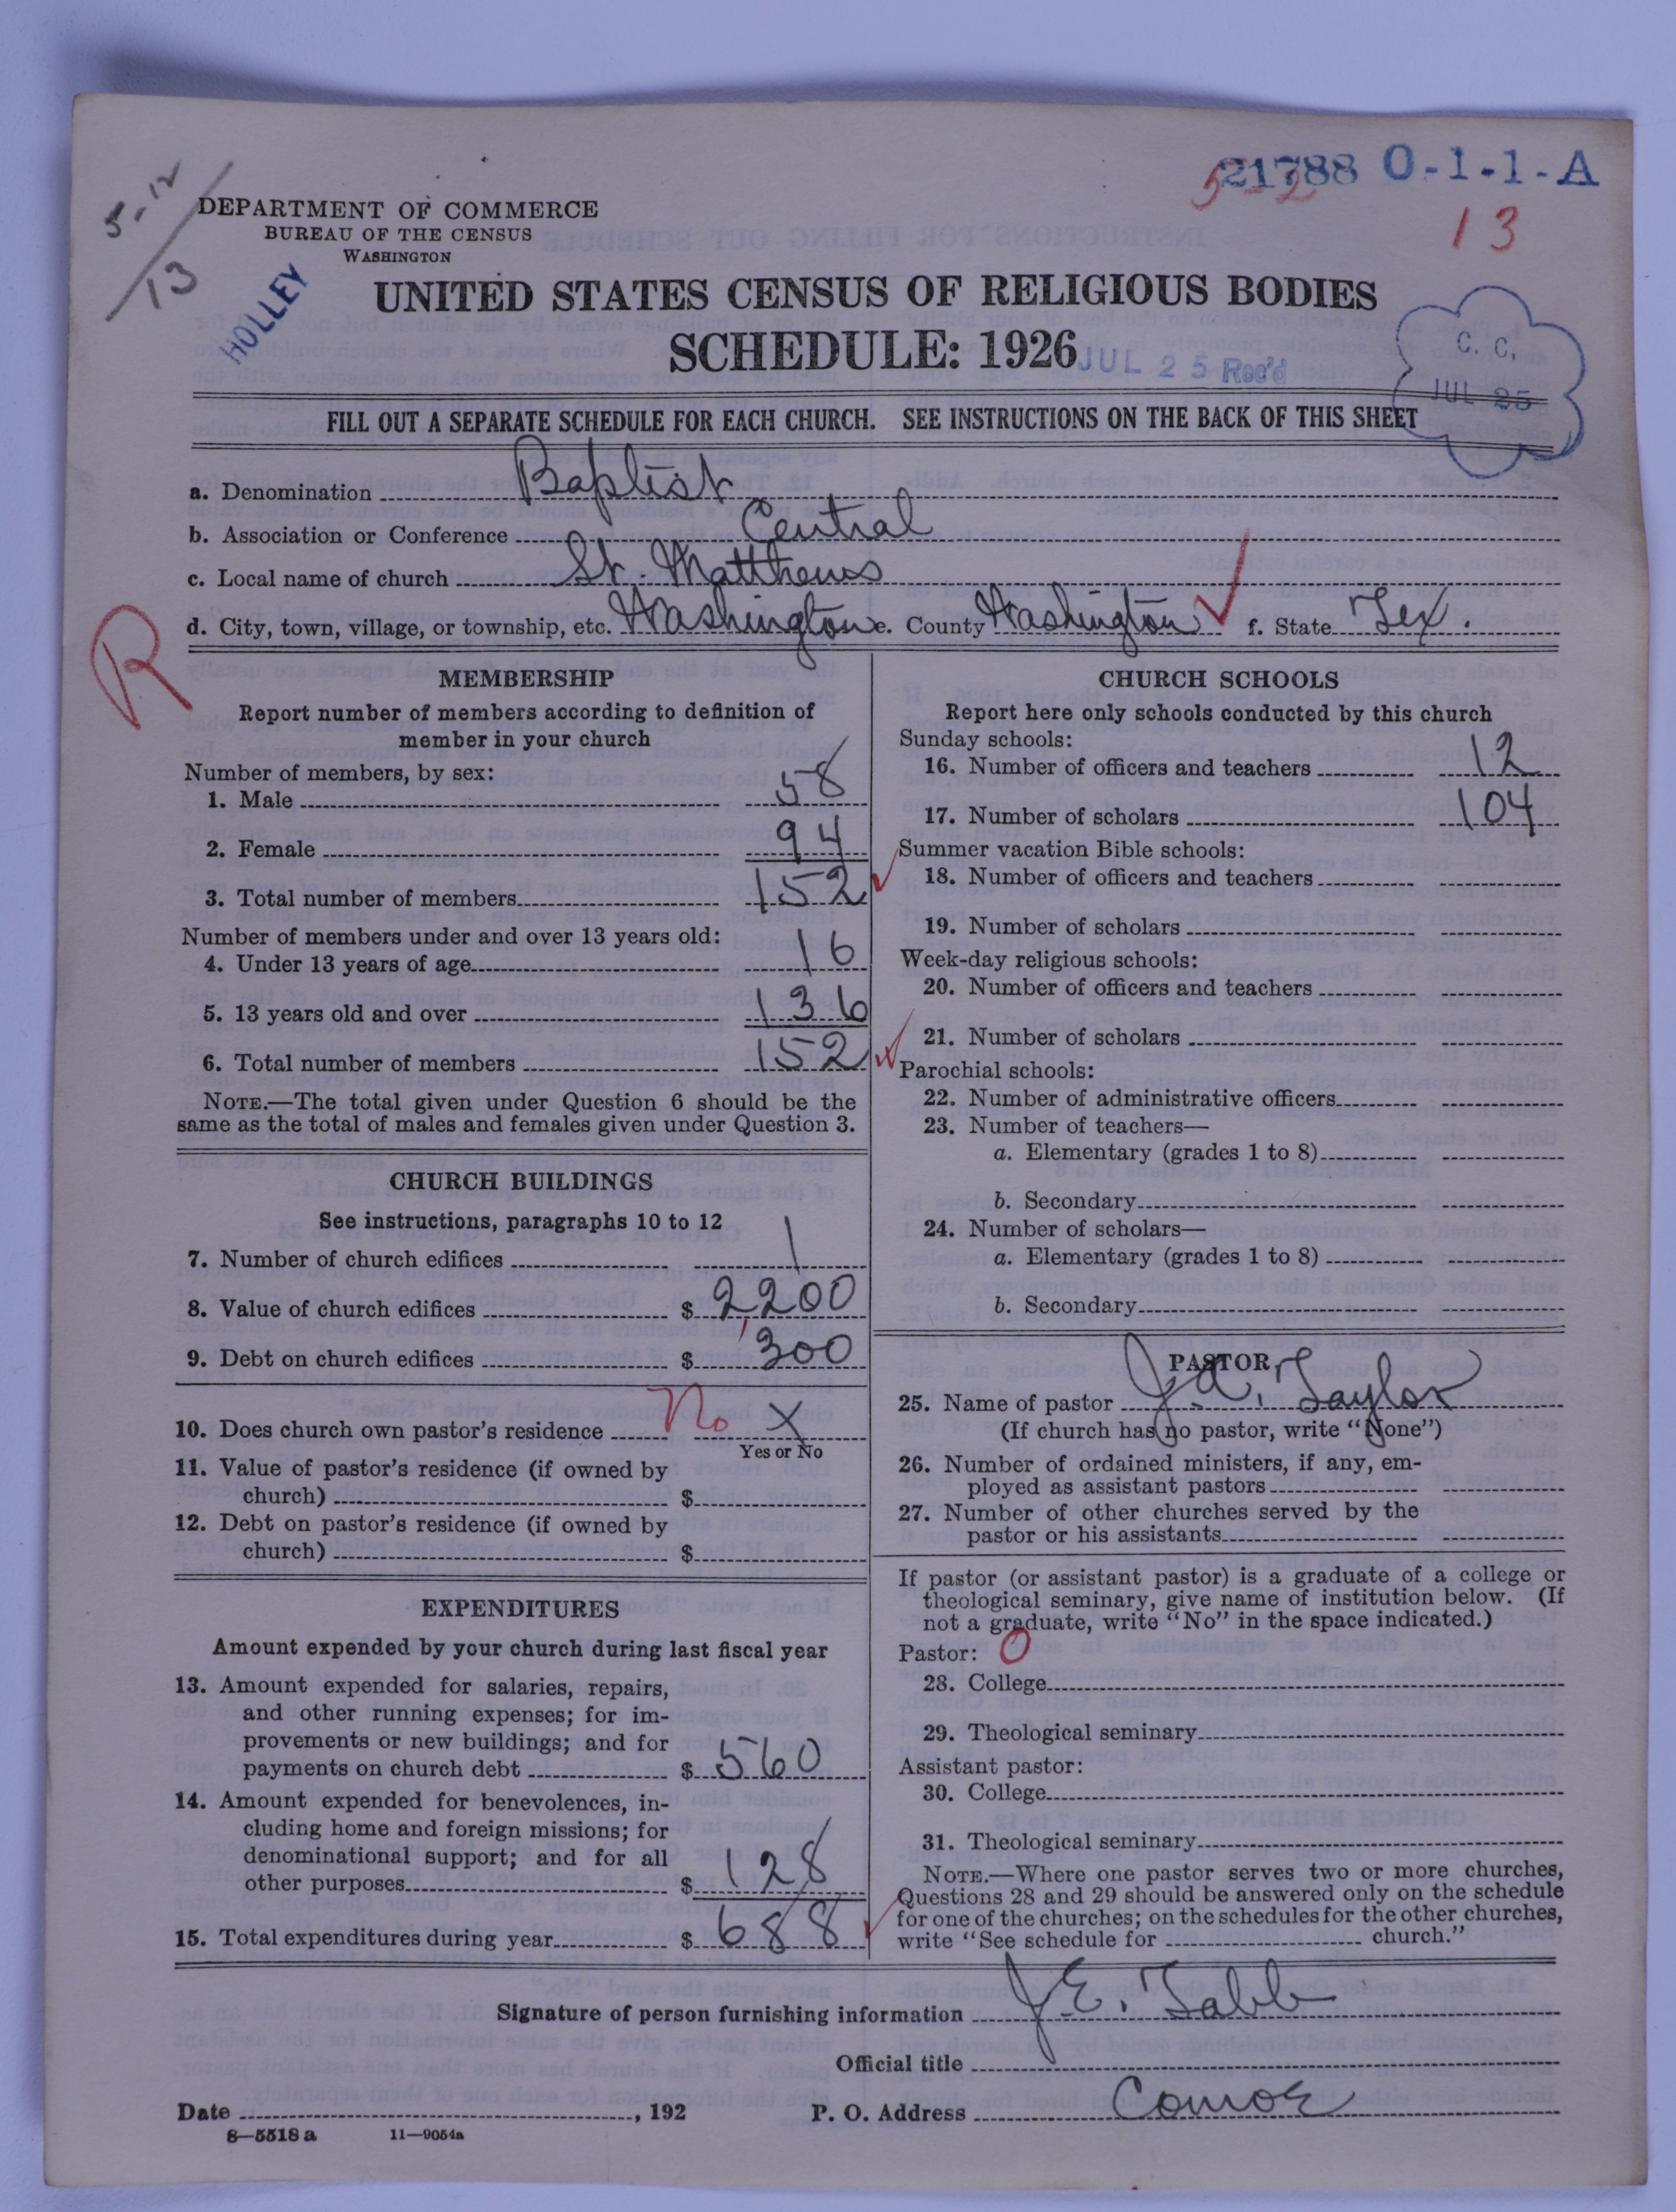 5-12
13
21788 O-1-1-A
13
DEPARTMENT OF COMMERCE
BUREAU OF THE CENSUS
WASHINGTON
HOLLEY
UNITED STATES CENSUS OF RELIGIOUS BODIES
SCHEDULE: 1926
JUL 25 Rec'd
C. C.
JUL 25
FILL OUT A SEPARATE SCHEDULE FOR EACH CHURCH. SEE INSTRUCTIONS ON THE BACK OF THIS SHEET
a. Denomination Baptist
b. Association or Conference Central
c. Local name of church St. Matthews
d. City, town, village, or township, etc. Washington e. County Washington f. State Tex.
R
MEMBERSHIP
Report number of members according to definition of
member in your church
Number of members, by sex:
1. Male 58
2. Female 94
3. Total number of members 152
Number of members under and over 13 years old:
4. Under 13 years of age 16
5. 13 years old and over 136
6. Total number of members 152
NOTE.—The total given under Question 6 should be the
same as the total of males and females given under Question 3.
CHURCH BUILDINGS
See instructions, paragraphs 10 to 12
7. Number of church edifices 1
8. Value of church edifices $ 2,200
9. Debt on church edifices $ 300
10. Does church own pastor's residence No X
Yes or No
11. Value of pastor's residence (if owned by
church) $
12. Debt on pastor's residence (if owned by
church) $
EXPENDITURES
Amount expended by your church during last fiscal year
13. Amount expended for salaries, repairs,
and other running expenses; for im-
provements or new buildings; and for
payments on church debt $ 560
14. Amount expended for benevolences, in-
cluding home and foreign missions; for
denominational support; and for all
other purposes $ 128
15. Total expenditures during year $ 688
CHURCH SCHOOLS
Report here only schools conducted by this church
Sunday schools:
16. Number of officers and teachers 12
17. Number of scholars 104
Summer vacation Bible schools:
18. Number of officers and teachers
19. Number of scholars
Week-day religious schools:
20. Number of officers and teachers
21. Number of scholars
Parochial schools:
22. Number of administrative officers
23. Number of teachers—
a. Elementary (grades 1 to 8)
b. Secondary
24. Number of scholars—
a. Elementary (grades 1 to 8)
b. Secondary
PASTOR
25. Name of pastor J. A. Taylor
(If church has no pastor, write "None")
26. Number of ordained ministers, if any, em-
ployed as assistant pastors
27. Number of other churches served by the
pastor or his assistants
If pastor (or assistant pastor) is a graduate of a college or
theological seminary, give name of institution below. (If
not a graduate, write "No" in the space indicated.)
Pastor: O
28. College
29. Theological seminary
Assistant pastor:
30. College
31. Theological seminary
NOTE.—Where one pastor serves two or more churches,
Questions 28 and 29 should be answered only on the schedule
for one of the churches; on the schedules for the other churches,
write "See schedule for church."
Signature of person furnishing information J. E. Tabb
Official title
Date , 192 P. O. Address
8—5518 a 11—9054a